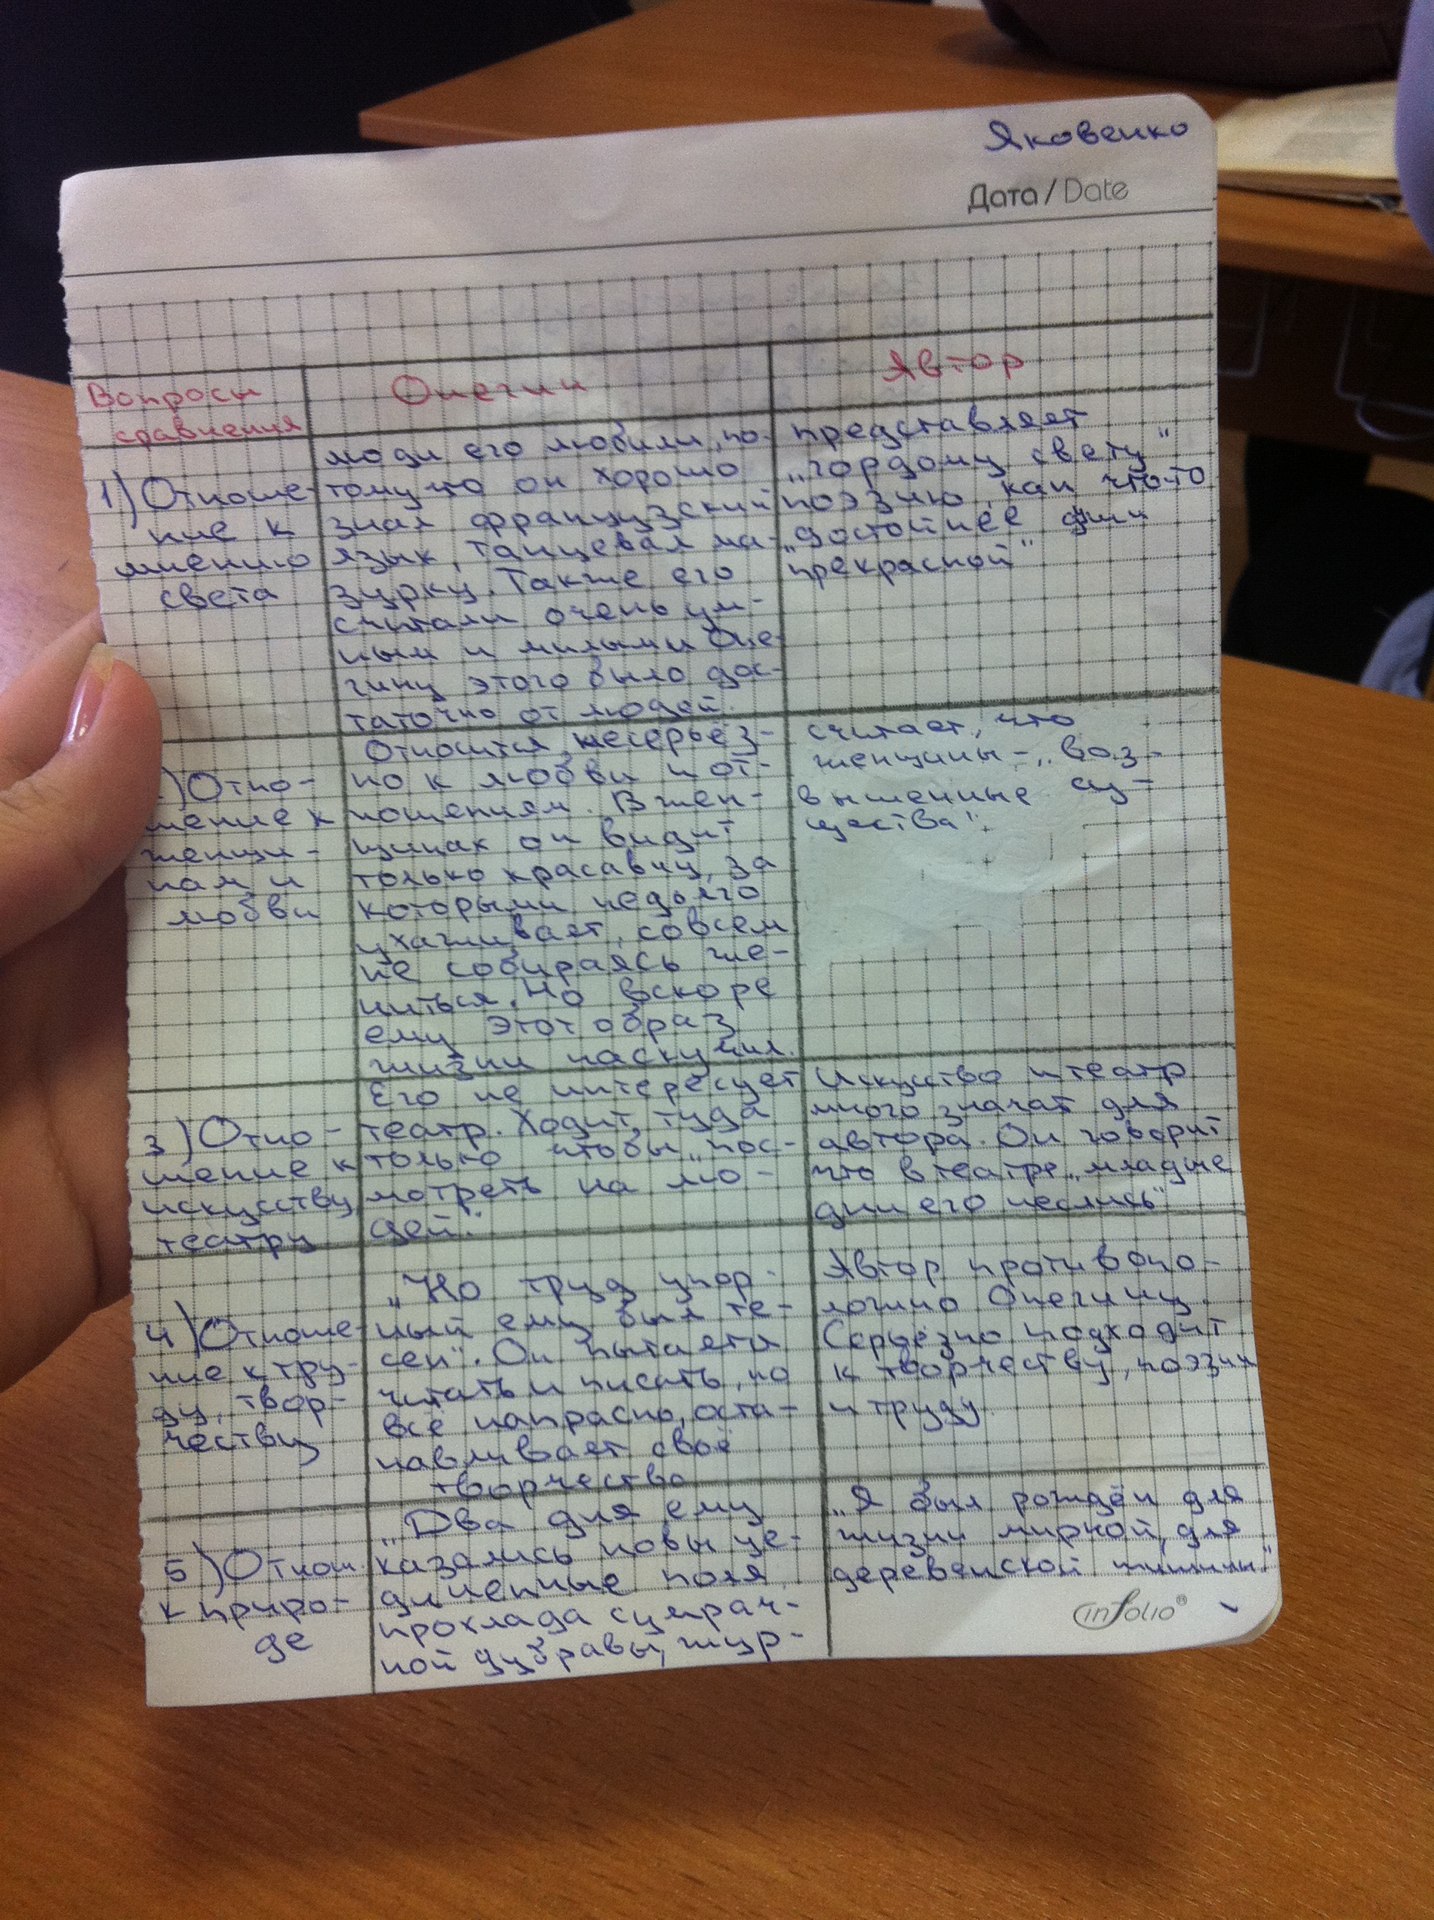 Яковенко
Дата/Date
Вопросы
сравнения
Онегин
Автор
1) Отноше-
ние к
мнению
света
люди его любили, по-
тому что он хорошо
знал французский
язык, танцевал ма-
зурку. Также его
считали очень ум-
ным и милым. Оне-
гину этого было дос-
таточно от людей.
представляет
„гордому свету"
поэзию, как что-то
„достойнее души
прекрасной"
2) Отно-
шение к
женщи-
нам и
любви
Относится несерьёз-
но к любви и от-
ношениям. В жен-
щинах он видит
только красавиц, за
которыми недолго
ухаживает, совсем
не собираясь же-
ниться. Но вскоре
ему этот образ
жизни наскучил.
считает, что
женщины - „воз-
вышенные су-
щества".
3) Отно-
шение к
искусству
театру
Его не интересует
театр. Ходит туда
только чтобы „пос-
мотреть на лю-
дей".
Искусство и театр
много значат для
автора. Он говорит
что в театре „младые
дни его неслись"
4) Отноше-
ние к тру-
ду, твор-
честву
„Но труд упор-
ный ему был те-
сен". Он пытается
читать и писать, но
всё напрасно, оста-
навливает своё
творчество
Автор противопо-
ложно Онегину.
Серьёзно подходит
к творчеству, поэзии
и труду
5) Отнош.
к приро-
де
„Два дня ему
казались новы уе-
диненные поля
прохлада сумрач-
ной дубравы, жур-
„Я был рождён для
жизни мирной, для
деревенской тишины"
infolio®